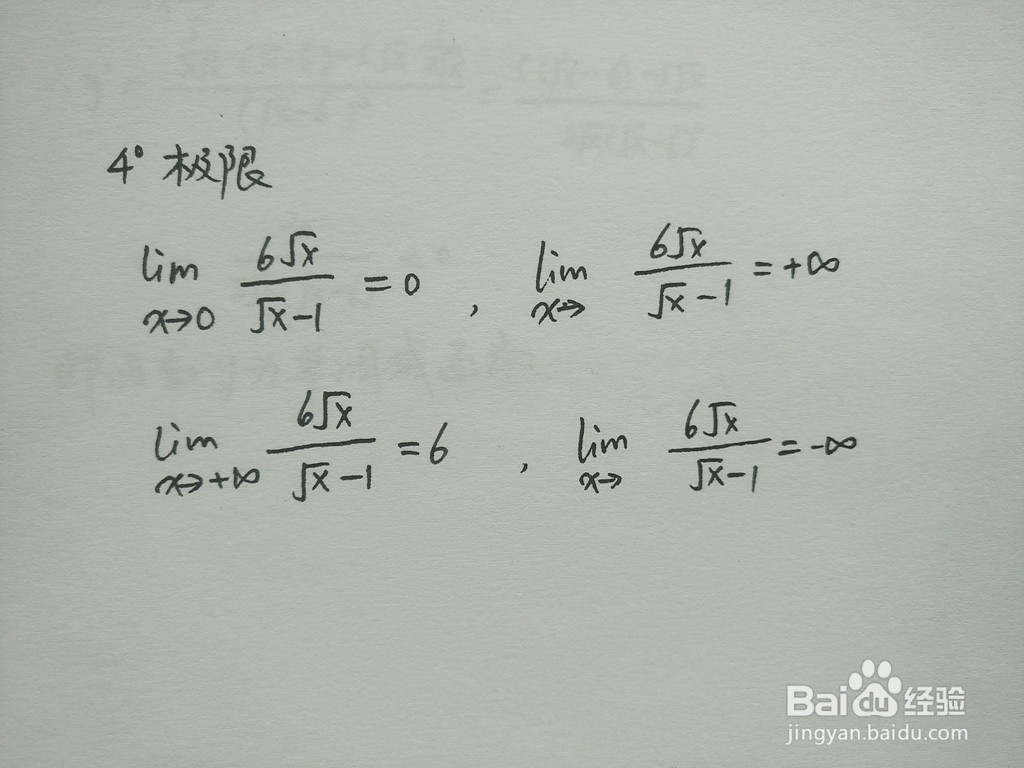 4° 极限
lim x→0 6√x / √x-1 = 0 , lim x→ 6√x / √x-1 = +∞
lim x→+∞ 6√x / √x-1 = 6 , lim x→ 6√x / √x-1 = -∞
Baidu经验
jingyan.baidu.com